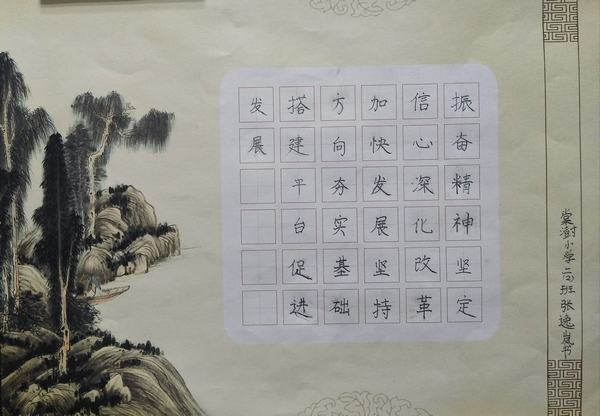 振奋精神坚定
信心深化改革
加快发展坚持
方向夯实基础
搭建平台促进
发展
棠澍小学二(2)班张逸岚书